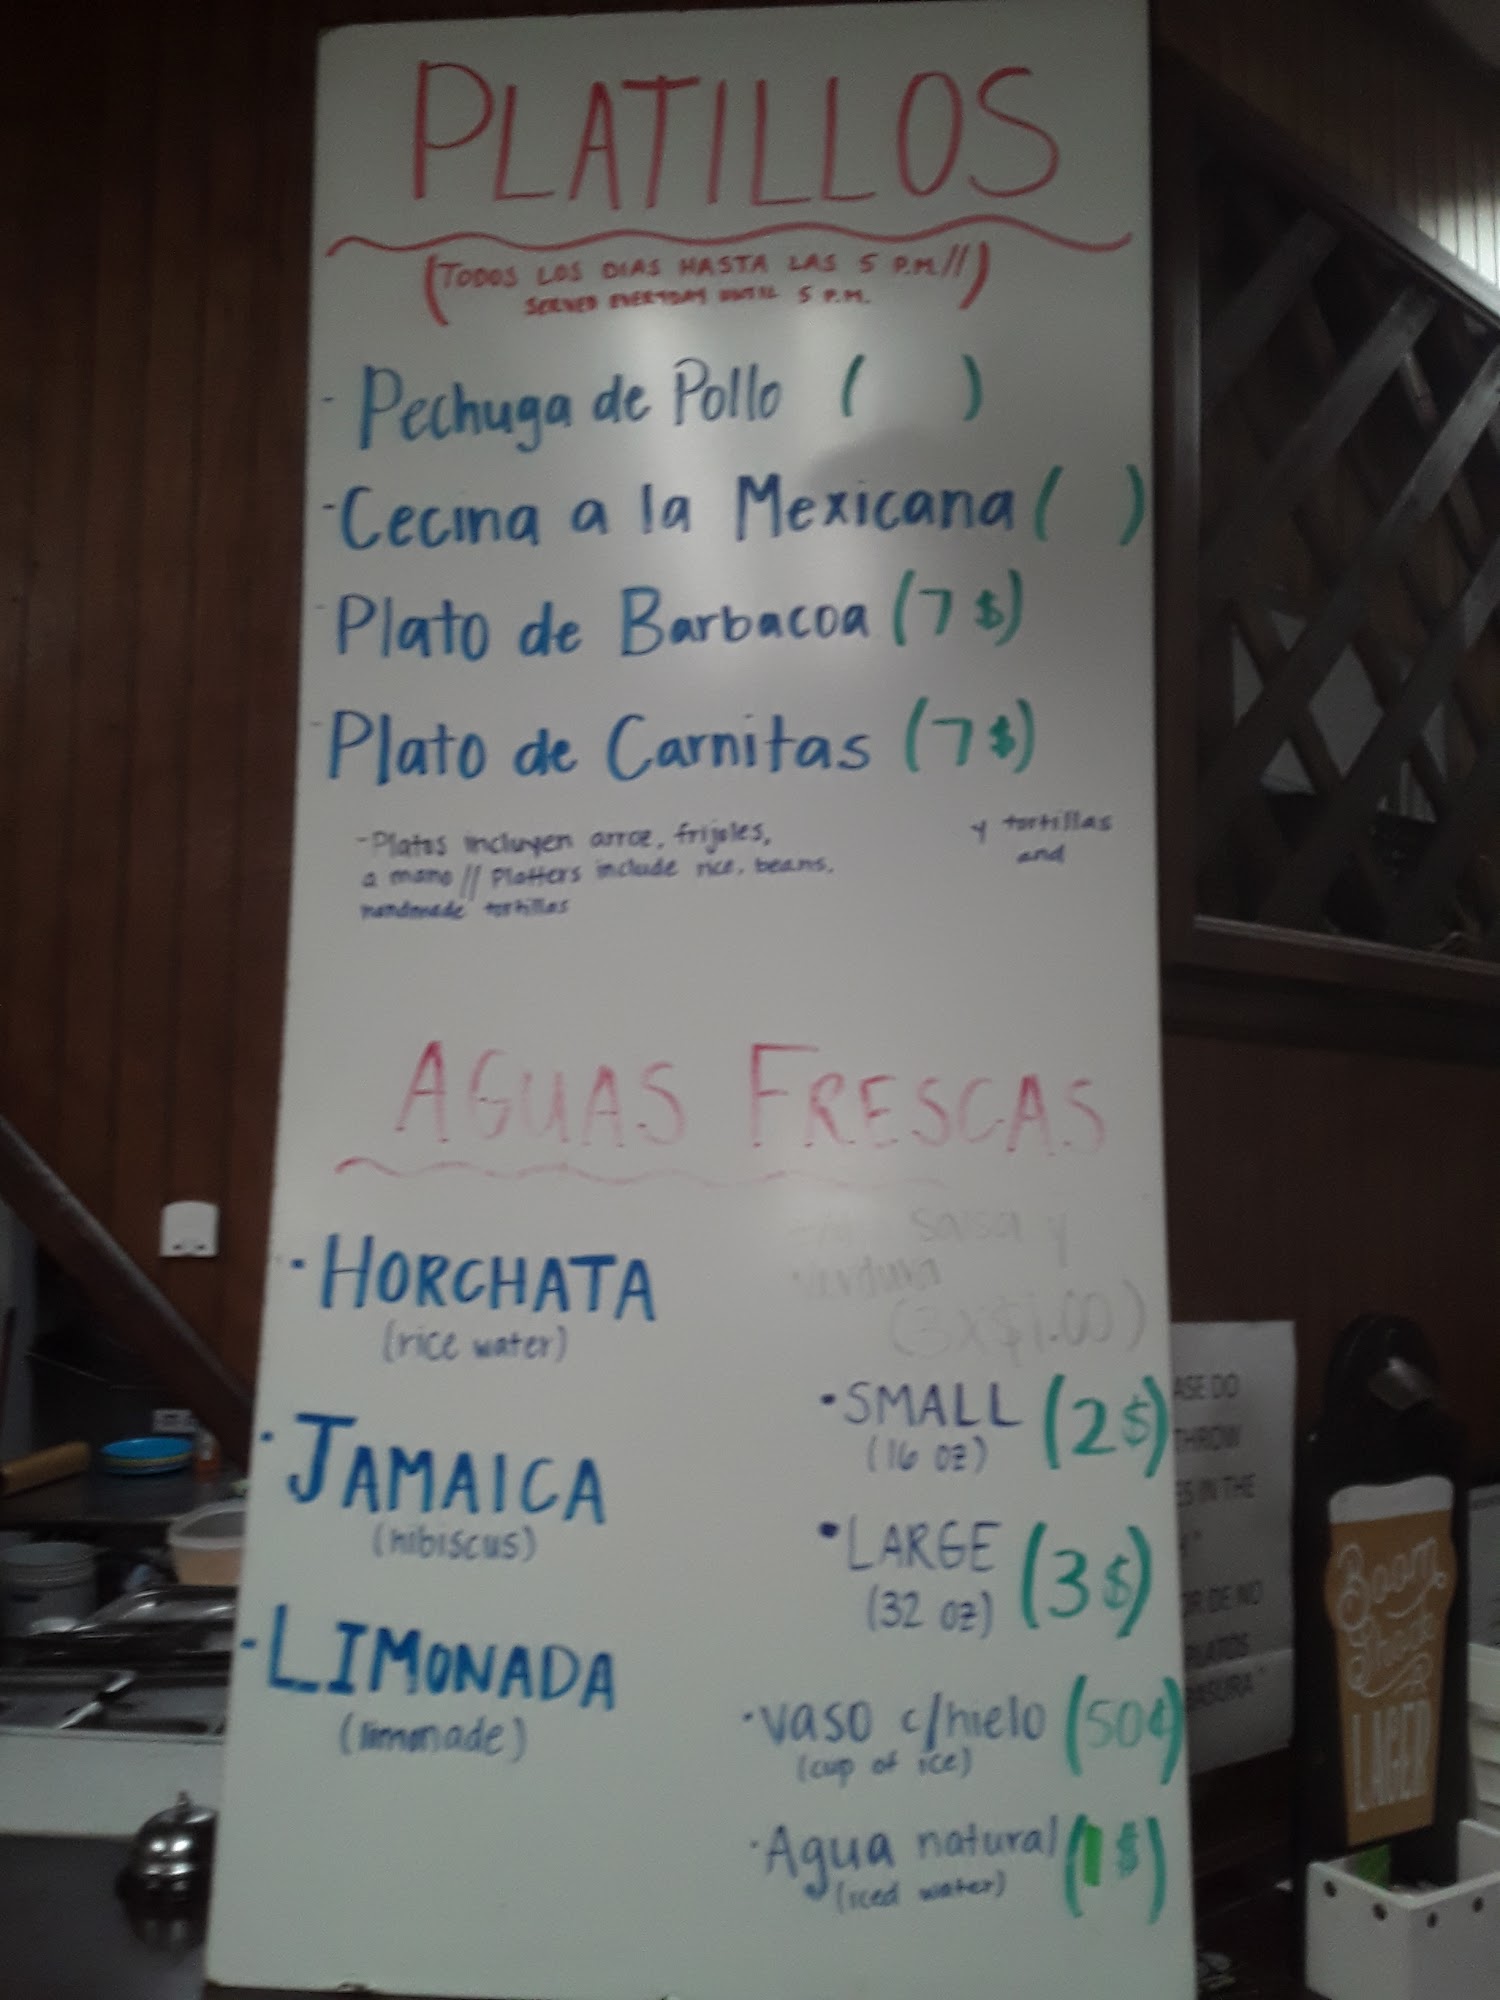 PLATILLOS
(TODOS LOS DIAS HASTA LAS 5 P.M//)
SERVED EVERYDAY UNTIL 5 P.M.
- Pechuga de Pollo ( )
- Cecina a la Mexicana ( )
- Plato de Barbacoa (7 $)
- Plato de Carnitas (7 $)
- Platos incluyen arroz, frijoles, y tortillas
a mano // Platters include rice, beans, and
handmade tortillas
AGUAS FRESCAS
salsa y
verdura
$1.00)
· HORCHATA
(rice water)
· JAMAICA
(hibiscus)
- LIMONADA
(limonade)
• SMALL (2$)
(16 oz)
• LARGE (3$)
(32 oz)
· vaso c/hielo (50¢)
(cup of ice)
· Agua natural (1$)
(iced water)
ASE DO
THROW
ES IN THE
OR DE NO
PLATOS
BASURA"
Boom
Shack
LAGER